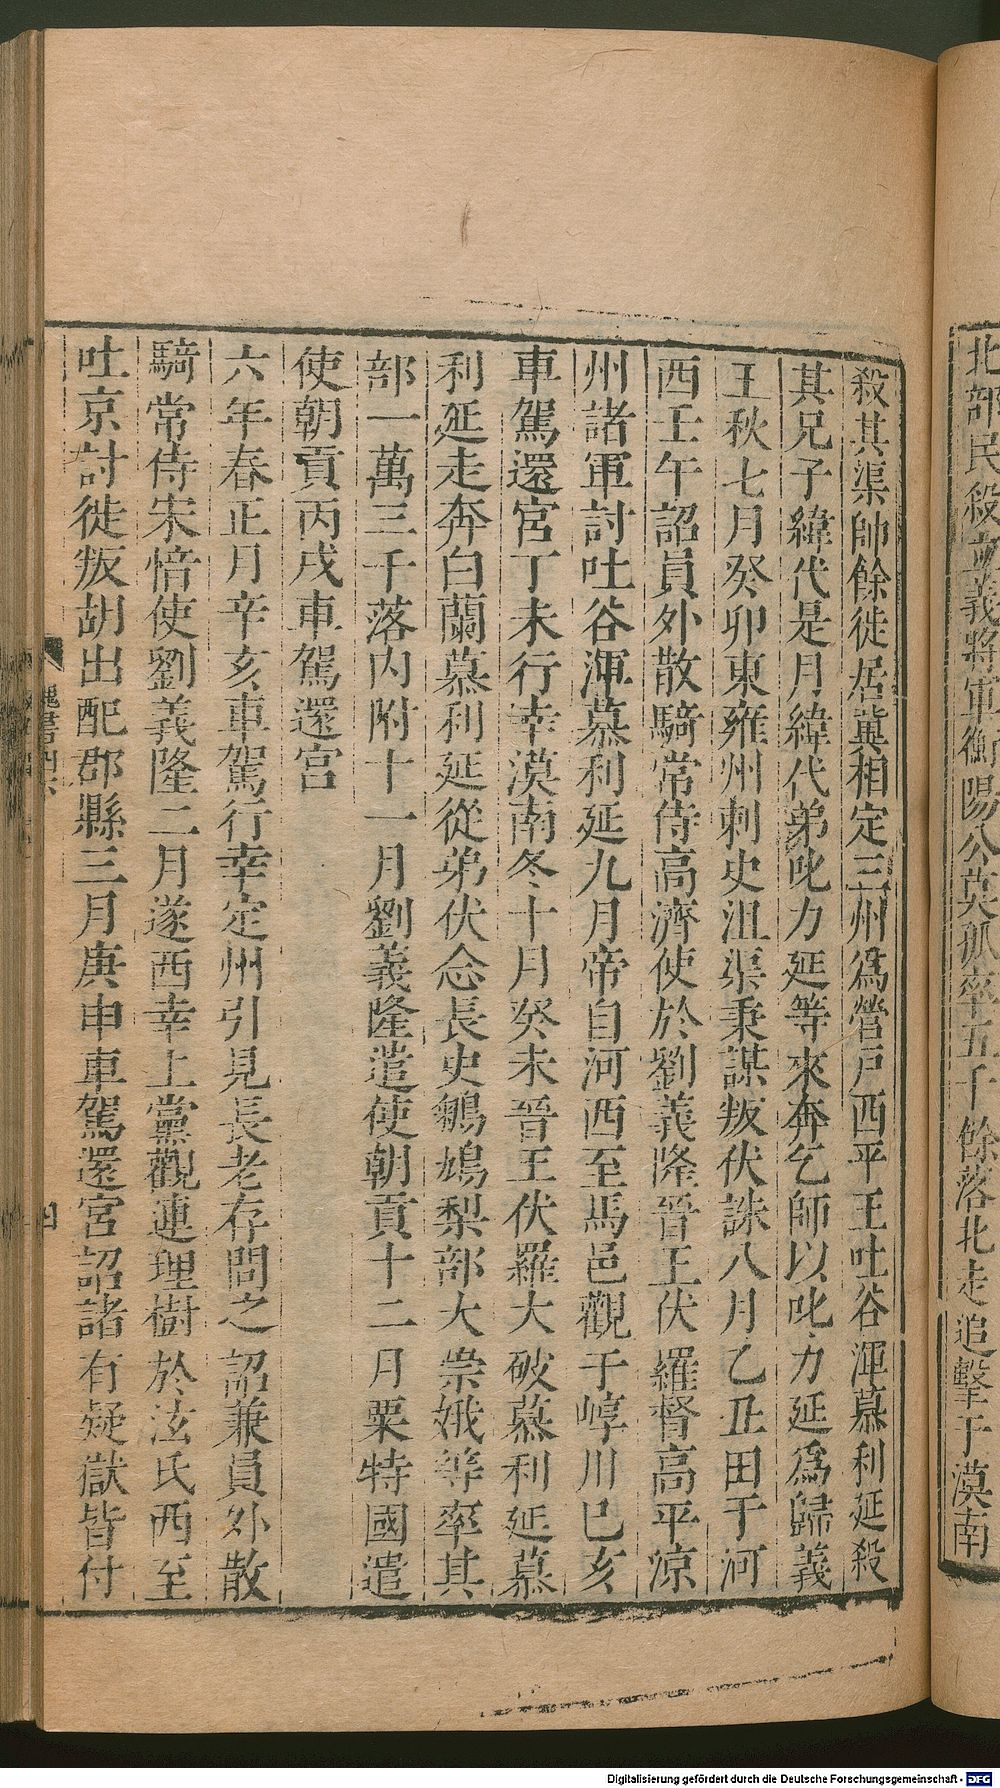 北部民殺立義將軍衡陽公莫孤率五千餘落北走追擊于漠南
殺其渠帥餘徙居冀相定三州爲營戸西平王吐谷渾慕利延殺
其兄子緯代是月緯代弟叱力延等來奔乞師以叱力延爲歸義
王秋七月癸卯東雍州刺史沮渠秉謀叛伏誅八月乙丑田于河
西壬午詔員外散騎常侍高濟使於劉義隆晉王伏羅督高平涼
州諸軍討吐谷渾慕利延九月帝自河西至馬邑觀于崞川巳亥
車駕還宮丁未行幸漠南冬十月癸未晉王伏羅大破慕利延慕
利延走奔白蘭慕利延從弟伏念長史鵴鳩梨部大崇娥等率其
部一萬三千落内附十一月劉義隆遣使朝貢十二月粟特國遣
使朝貢丙戌車駕還宮
六年春正月辛亥車駕行幸定州引見長老存問之詔兼員外散
騎常侍宋愔使劉義隆二月遂西幸上黨觀連理樹於泫氏西至
吐京討徙叛胡出配郡縣三月庚申車駕還宮詔諸有疑獄皆付
魏書
Digitalisierung gefördert durch die Deutsche Forschungsgemeinschaft - DFG